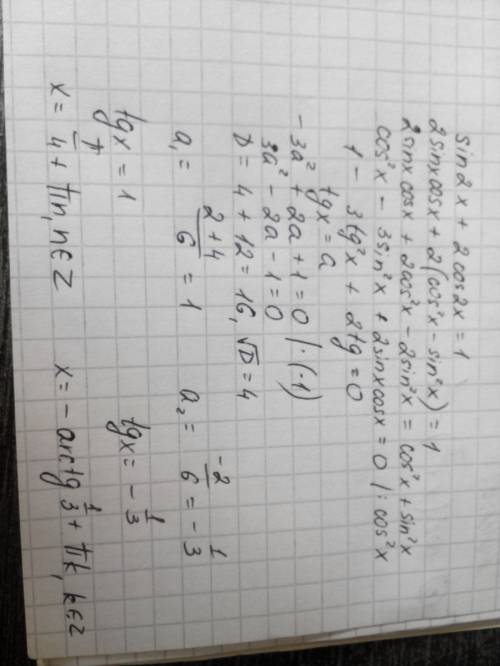 sin2x + 2cos2x = 1
2sinxcosx + 2(cos²x - sin²x) = 1
2sinxcosx + 2cos²x - 2sin²x = cos²x + sin²x
cos²x - 3sin²x + 2sinxcosx = 0 | : cos²x
1 - 3tg²x + 2tg = 0
tgx = a
- 3a² + 2a + 1 = 0 | · (-1)
3a² - 2a - 1 = 0
D = 4 + 12 = 16, √D = 4
a₁ = (2+4)/6 = 1    a₂ = -2/6 = -1/3
tgx = 1    tgx = -1/3
x = π/4 + πn, n∈Z    x = - arctg 1/3 + πk, k∈Z